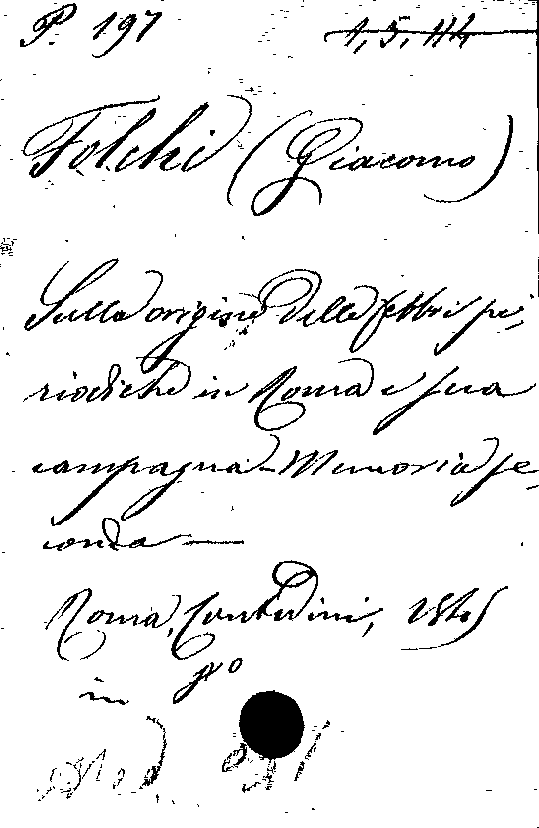 P. 197 1, 5, 114
Folchi (Giacomo)
Sulla origine delle febbri pe-
riodiche in Roma e sua
campagna - Memoria se-
conda —
Roma, Contedini, 1845
in 8º
Med